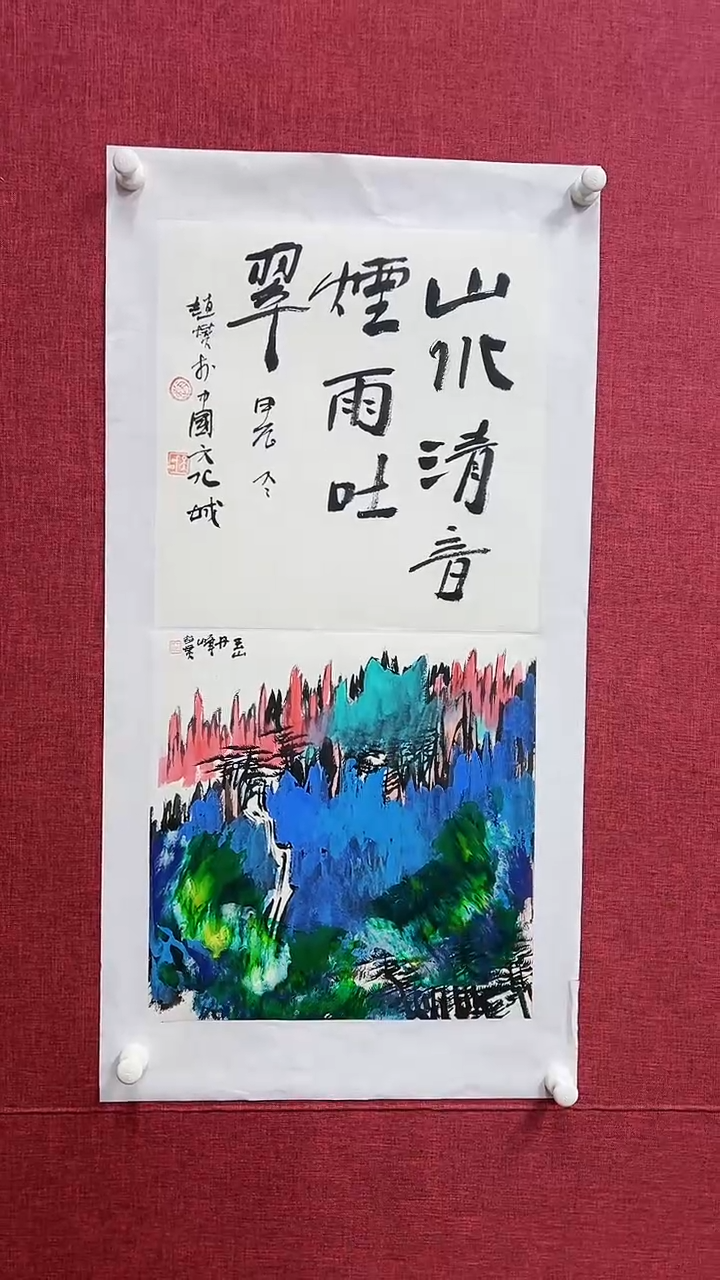 山水清音
煙雨吐
翠
甲辰冬
趙贊於中國文化城
玉山丹峰